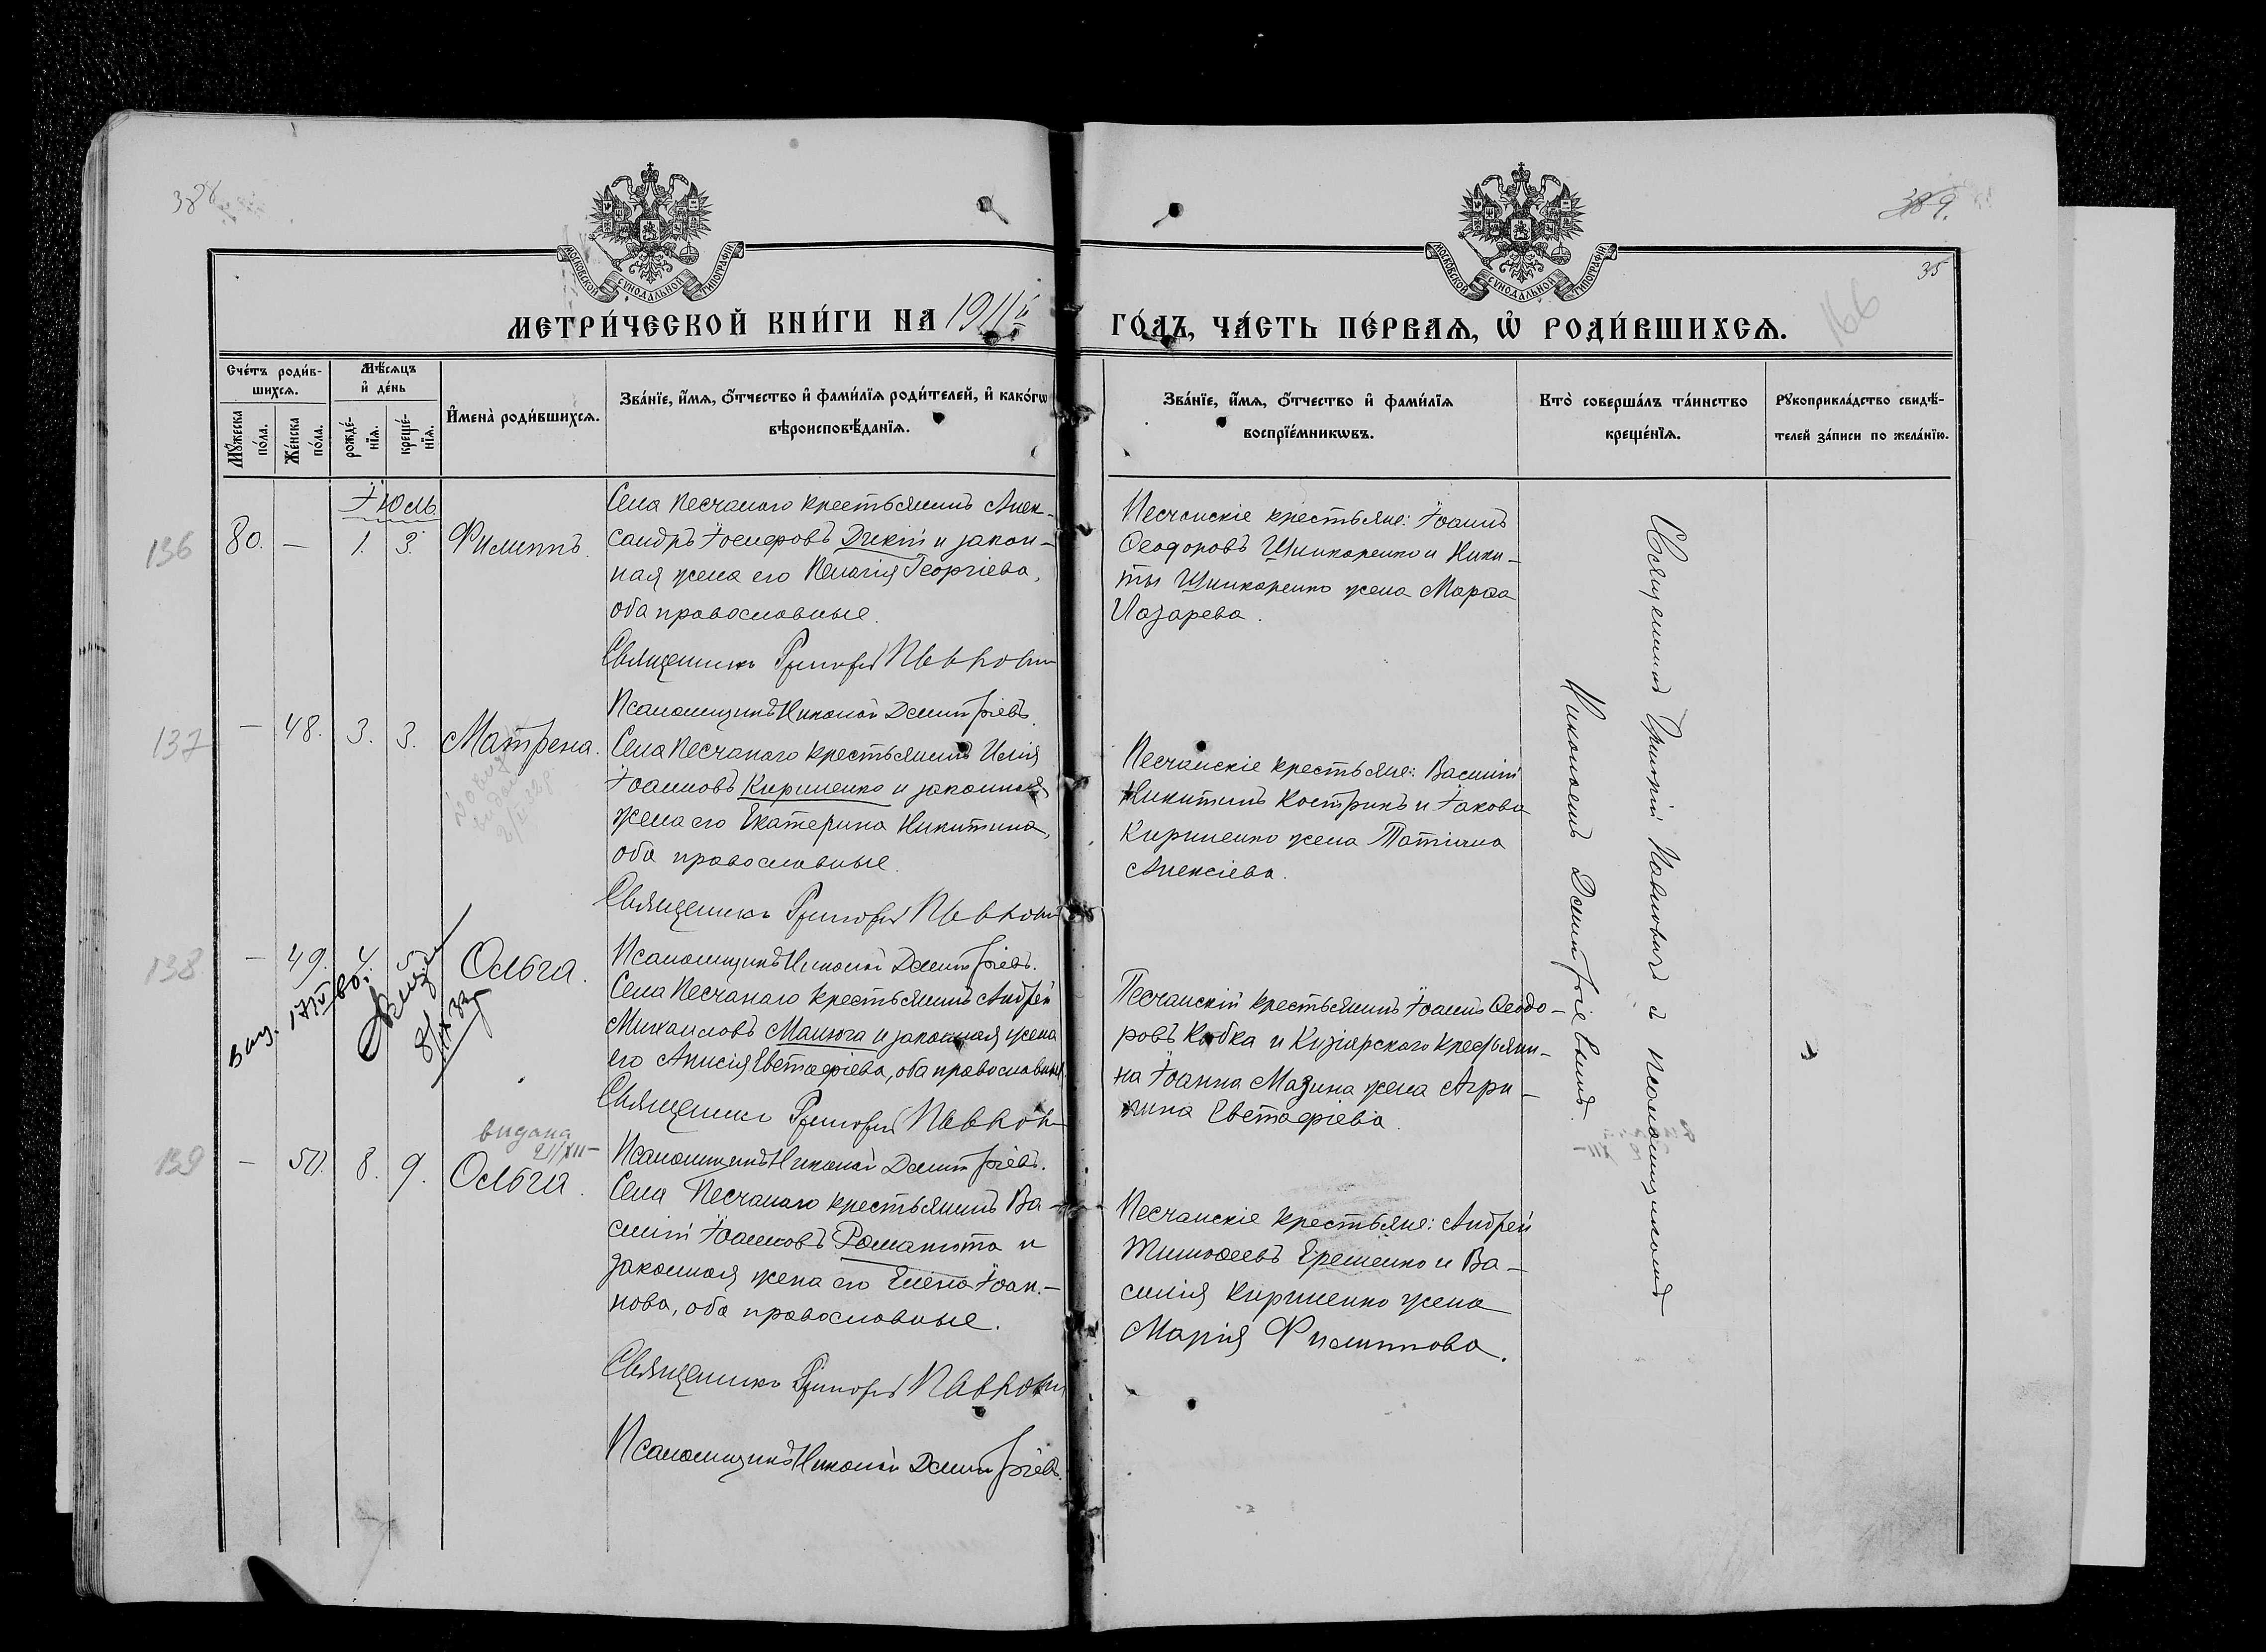 328
389.
35
166
МОСКОВСКОЙ СѴНОДАЛЬНОЙ ТИПОГРАФІИ
МОСКОВСКОЙ СѴНОДАЛЬНОЙ ТИПОГРАФІИ
МЕТРИ́ЧЕСКОЙ КНИ́ГИ НА 1911й
ГО́ДЪ, ЧА́СТЬ ПЕ́РВАѦ, Ѡ҆ РОДИ́ВШИХСѦ.
Сче́тъ роди́в-
шихсѧ.
Мѣ́сѧцъ
и҆ де́нь
Мꙋ́жеска
по́ла.
Же́нска
по́ла.
рожде́-
нїѧ.
креще́-
нїѧ.
И҆мена̀ роди́вшихсѧ.
Зва́нїе, и҆́мѧ, ѻ҆́тчество и҆ фами́лїѧ роди́телей, и҆ како́гѡ
вѣроисповѣ́данїѧ.
Зва́нїе, и҆́мѧ, ѻ҆́тчество и҆ фами́лїѧ
воспрїе́мникѡвъ.
Кто̀ соверша́лъ та́инство
креще́нїѧ.
Рꙋкоприкла́дство свидѣ́-
телей за́писи по жела́нїю.
Іюль
136
80. — 1. 3. Филиппъ.
Села Песчанаго крестьянинъ Алек-
сандръ Іосифовъ Дикій и закон-
ная жена его Пелагія Георгіева,
оба православные.
Священникъ Григорій Павлович
Псаломщикъ Николай Димитріевъ.
Песчанскіе крестьяне: Іоаннъ
Ѳеодоровъ Шинкаренко и Ники-
ты Шинкаренко жена Марѳа
Лазарева.
137
— 48. 3. 3. Матрена.
Села Песчанаго крестьянинъ Илія
Іоанновъ Кириленко и законная
жена его Екатерина Никитина,
оба православные.
Священникъ Григорій Павлович
Псаломщикъ Николай Димитріевъ.
Песчанскіе крестьяне: Василій
Никитинъ Кострикъ и Іакова
Кириленко жена Татіана
Алексіева.
138
— 49. 4. 5. Ольга.
Села Песчанаго крестьянинъ Андрей
Михаиловъ Манюга и законная жена
его Анисія Евстафіева, оба православные.
Священникъ Григорій Павлович
Псаломщикъ Николай Димитріевъ.
Песчанскій крестьянинъ Іоаннъ Ѳеодо-
ровъ Кобка и Кизіярскаго крестьяни-
на Іоанна Мазина жена Агри-
пина Евстафіева.
видана
21/XII
139
— 50. 8. 9. Ольга.
Села Песчанаго крестьянинъ Ва-
силій Іоанновъ Романюта и
законная жена его Елена Іоан-
нова, оба православные.
Священникъ Григорій Павлович
Псаломщикъ Николай Димитріевъ.
Песчанскіе крестьяне: Андрей
Тимоѳеевъ Еременко и Ва-
силія Кириленко жена
Марія Филиппова.
Священникъ Григорій Павловичъ с псаломщикомъ
Николаемъ Димитріевымъ.